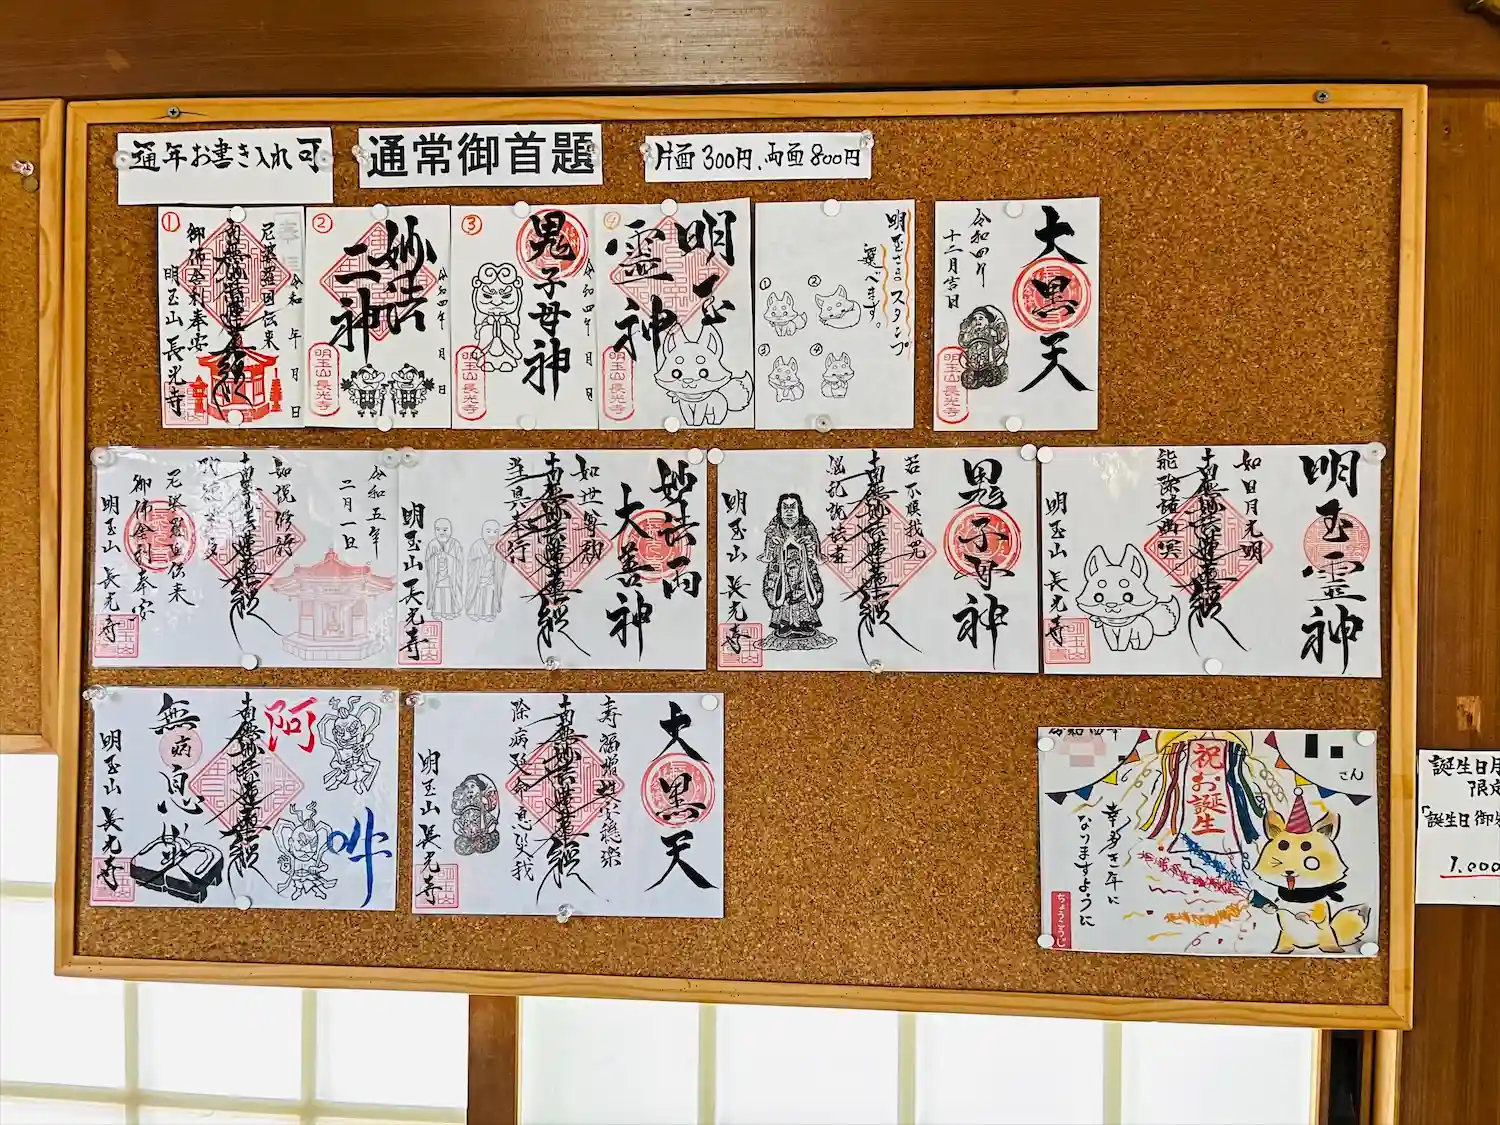 通年お書き入れ可
通常御首題
片面300円、両面800円
①
尼婆羅国伝来
南無妙法蓮華経
御佛舎利奉安
明玉山 長光寺
令和 年 月 日
②
妙法
二神
令和四年 月 日
明玉山長光寺
③
鬼子母神
令和四年 月 日
明玉山長光寺
④
明玉
霊神
明玉山長光寺
明玉さまスタンプ
選べます。
①
②
③
④
大黒天
令和四年
十二月吉日
明玉山長光寺
令和五年
二月一日
如説修行
南無妙法蓮華経
尼婆羅国伝来
御佛舎利奉安
明玉山 長光寺
妙法両
大善神
如世尊勅
南無妙法蓮華経
当具奉行
明玉山 長光寺
鬼子母神
若不順我咒
南無妙法蓮華経
悩乱説法者
明玉山 長光寺
明玉霊神
如日月光明
南無妙法蓮華経
能除諸幽冥
明玉山 長光寺
阿
吽
南無妙法蓮華経
無病息災
明玉山 長光寺
大黒天
南無妙法蓮華経
明玉山 長光寺
さん
祝お誕生
幸多き年に
なりますように
ちょうこうじ
誕生日月
限定
「誕生日御
1.000